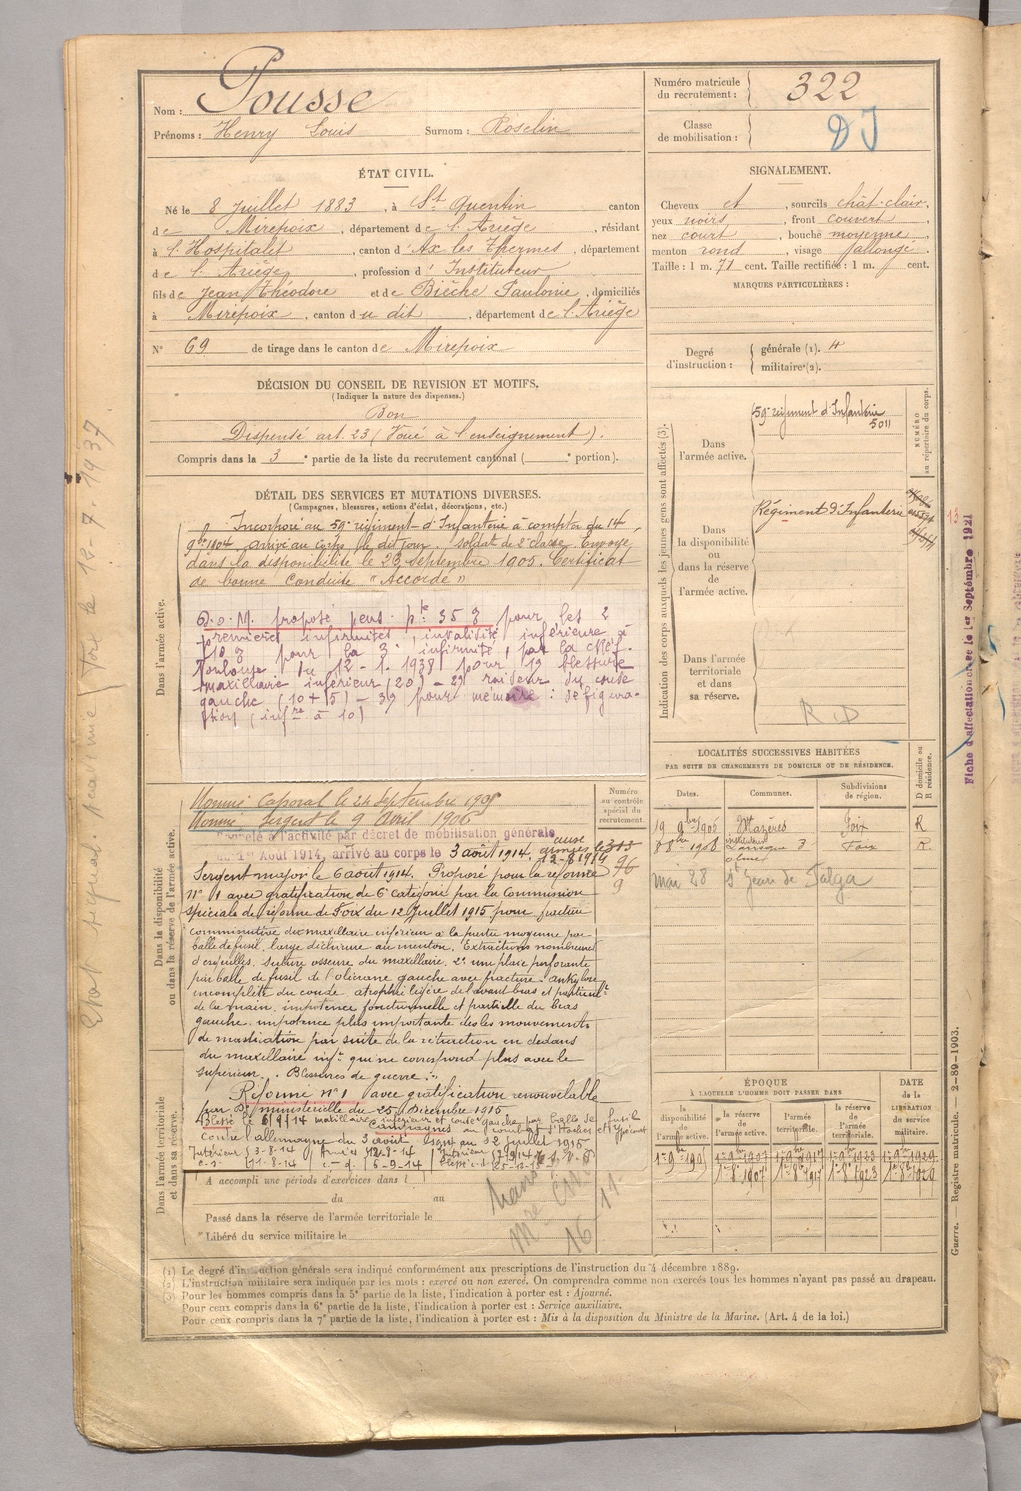 Nom : Pousse
Prénoms : Henry Louis Surnom : Roselin
Numéro matricule du recrutement : 322
Classe de mobilisation :
ÉTAT CIVIL.
Né le 8 Juillet 1883, à St Quentin canton
de Mirepoix, département de l'Ariège, résidant
à l'Hospitalet, canton d'Ax les Thermes, département
de l'Ariège, profession d'Instituteur
fils de Jean Théodore et de Bièche Paulonie, domiciliés
à Mirepoix, canton du dit, département de l'Ariège
N° 69 de tirage dans le canton de Mirepoix
SIGNALEMENT.
Cheveux et, sourcils chât-clair,
yeux noirs, front couvert
nez court, bouche moyenne,
menton rond, visage allongé.
Taille : 1 m. 71 cent. Taille rectifiée : 1 m. cent.
MARQUES PARTICULIÈRES :
Degré d'instruction : générale (1). 4
militaire (2).
DÉCISION DU CONSEIL DE REVISION ET MOTIFS.
(Indiquer la nature des dispenses.)
Bon
Dispensé art. 23 (Voué à l'enseignement).
Compris dans la 3e partie de la liste du recrutement cantonal ( e portion).
DÉTAIL DES SERVICES ET MUTATIONS DIVERSES.
(Campagnes, blessures, actions d'éclat, décorations, etc.)
Dans l'armée active.
Incorporé au 59e régiment d'Infanterie à compter du 14
9bre 1904, arrivé au corps le dit jour, soldat de 2e classe. Envoyé
dans la disponibilité le 23 septembre 1905. Certificat
de bonne conduite "Accordé"
propose pens. pte 35 % pour les 2
premières infirmités, invalidité inférieure à
10 % pour la 3e infirmité, par la
Toulouse du 12-1.1938 pour 1° blessure
maxillaire inférieur (20) – 2° raideur du coude
gauche (10+5) – 3° pour mémoire : défigura-
tion (infre à 10)
Dans la disponibilité ou dans la réserve de l'armée active.
Nommé Caporal le 24 septembre 1905
Nommé Sergent le 9 Avril 1906
Rappelé à l'activité par décret de mobilisation générale
du 1er Août 1914, arrivé au corps le 3 août 1914.
Sergent major le 6 août 1914. Proposé pour la réforme
n° 1 avec gratification de 6e catégorie par la Commission
spéciale de réforme de Foix du 12 Juillet 1915 pour fracture
comminutive du maxillaire inférieur à la partie moyenne par
balle de fusil, large déchirure au menton. Extractions nombreuses
d'esquilles, suture osseuse du maxillaire. 2° une plaie perforante
par balle de fusil de l'olécrane gauche avec fracture. ankylose
incomplète du coude atrophie légère de l'avant bras et
de la main, impotence fonctionnelle et partielle du bras
gauche, impotence plus importante des mouvements
de mastication par suite de la rétraction en dedans
du maxillaire infr qui ne correspond plus avec le
supérieur. Blessures de guerre.
Réformé n° 1 avec gratification renouvelable
par Don ministérielle du 25 Décembre 1915
Blessé le 6/9/14 maxillaire inférieur et coude gauche par balle de fusil
Campagnes
Contre l'allemagne du 3 août 1914 au 12 juillet 1915
Intérieur 3-8-14
11-8-14
6-9-14
Dans l'armée territoriale et dans sa réserve.
A accompli une périodes d'exercices dans l
du au
Passé dans la réserve de l'armée territoriale le
Libéré du service militaire le
Numéro au contrôle spécial du recrutement.
Indication des corps auxquels les jeunes gens sont affectés (3).
NUMÉRO au répertoire du corps.
Dans l'armée active. 59e régiment d'Infanterie
5011
Dans la disponibilité ou dans la réserve de l'armée active. Régiment d'Infanterie
Dans l'armée territoriale et dans sa réserve.
R D
LOCALITÉS SUCCESSIVES HABITÉES
PAR SUITE DE CHANGEMENTS DE DOMICILE OU DE RÉSIDENCE.
Dates. Communes. Subdivisions de région. D domicile ou R résidence.
19 9bre 1905 Mazères Foix R
8bre 1908 Foix R.
mai 28 St Jean de Falga
ÉPOQUE
À LAQUELLE L'HOMME DOIT PASSER DANS
la disponibilité de l'armée active. la réserve de l'armée active. l'armée territoriale. la réserve de l'armée territoriale. DATE de la LIBÉRATION du service militaire.
1er 8bre 1907 1er 8bre 1917 1er 8bre 1923 1er 8bre 1929
(1) Le degré d'instruction générale sera indiqué conformément aux prescriptions de l'instruction du 4 décembre 1889.
(2) L'instruction militaire sera indiquée par les mots : exercé ou non exercé. On comprendra comme non exercés tous les hommes n'ayant pas passé au drapeau.
(3) Pour les hommes compris dans la 5e partie de la liste, l'indication à porter est : Ajourné.
Pour ceux compris dans la 6e partie de la liste, l'indication à porter est : Service auxiliaire.
Pour ceux compris dans la 7e partie de la liste, l'indication à porter est : Mis à la disposition du Ministre de la Marine. (Art. 4 de la loi.)
Guerre. — Registre matricule. — 2-89-1903.
Fiche d'affectation classe le 1er Septembre 1921